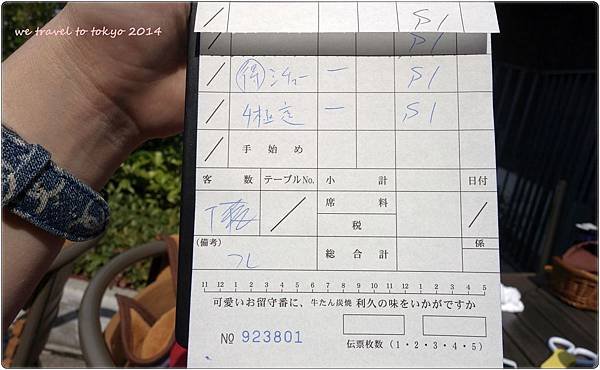 we travel to tokyo 2014
S1
S1
得 シチュー 一 S1
4極定 一 S1
手始め
客数 テーブルNo. 小計 日付
席料
税
(備考) 総合計 係
フレ
11 12 1 2 3 4 5 6 7 8 9 10 11 12 1 2 3 4 5
可愛いお留守番に、牛たん炭焼 利久の味をいかがですか
No 923801
伝票枚数(1・2・3・4・5)